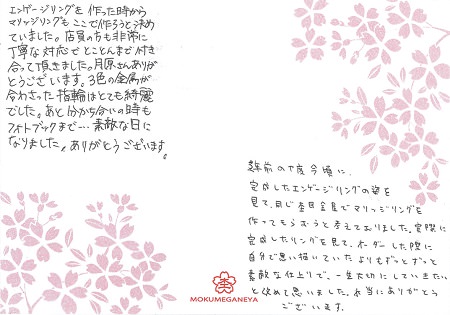 エンゲージリングを作った時から
マリッジリングもここで作ろうと決め
ていました。店員の方も非常に
丁寧な対応でとことんまで付き
合って頂きました。月原さんありが
とうございます。3色の金属が
合わさった指輪はとても綺麗
でした。あと分かち合いの時も
フォトブックまで…素敵な日に
なりました。ありがとうございます。
年前の丁度今頃に、
完成したエンゲージリングの姿を
見て、同じ杢目金屋でマリッジリングを
作ってもらおうと考えておりました。実際に
完成したリングを見て、オーダーした際に
自分で思い描いていたよりもずっとずっと
素敵な仕上りで、一生大切にしていきたい
と改めて思いました。本当にありがとう
ございます。
MOKUMEGANEYA